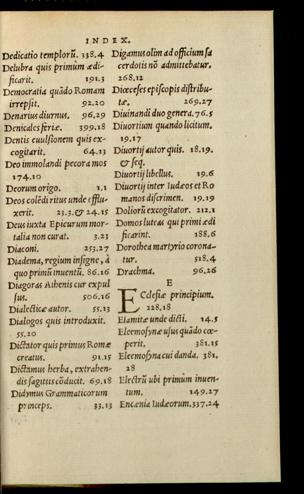 INDEX.
Dedicatio templorū. 338.4
Delubra quis primùm ædi-
ficarit. 191.3
Democratia quādo Romam
irrepsit. 92.20
Denarius diurnus. 96.29
Denicales feriæ. 399.18
Dentis euulsionem quis ex-
cogitarit. 64.13
Deo immolandi pecora mos
174.10
Deorum origo. 1.1
Deos colēdi ritus unde efflu-
xerit. 23.3.& 24.15
Deus iuxta Epicurum mor-
talia non curat. 3.23
Diaconi. 253.27
Diadema, regium insigne, à
quo primū inuentū. 86.16
Diagoras Athenis cur expul
sus. 506.16
Dialecticæ autor. 55.13
Dialogos quis introduxit.
55.20
Dictator quis primus Romæ
creatus. 91.15
Dictamus herba, extrahen-
dis sagittis cōducit. 69.18
Didymus Grammaticorum
princeps. 33.13
Digamus olim ad officium sa
cerdotis nō admittebatur.
268.12
Diœceses episcopis distribu-
tæ. 269.27
Diuinandi duo genera. 76.5
Diuortium quando licitum.
19.17
Diuortij autor quis. 18.19.
& seq.
Diuortij libellus. 19.6
Diuortij inter Iudæos et Ro
manos discrimen. 19.19
Doliorū excogitator. 212.1
Domos luteas qui primi ædi
ficarint. 188.6
Dorothea martyrio corona-
tur. 518.4
Drachma. 96.26
E
Ecclesiæ principium.
228.18
Elamitæ unde dicti. 14.5
Eleemosynæ usus quādo cœ-
perit. 381.15
Eleemosyna cui danda. 381.
28
Electrū ubi primùm inuen-
tum. 149.27
Encænia Iudæorum. 337.24